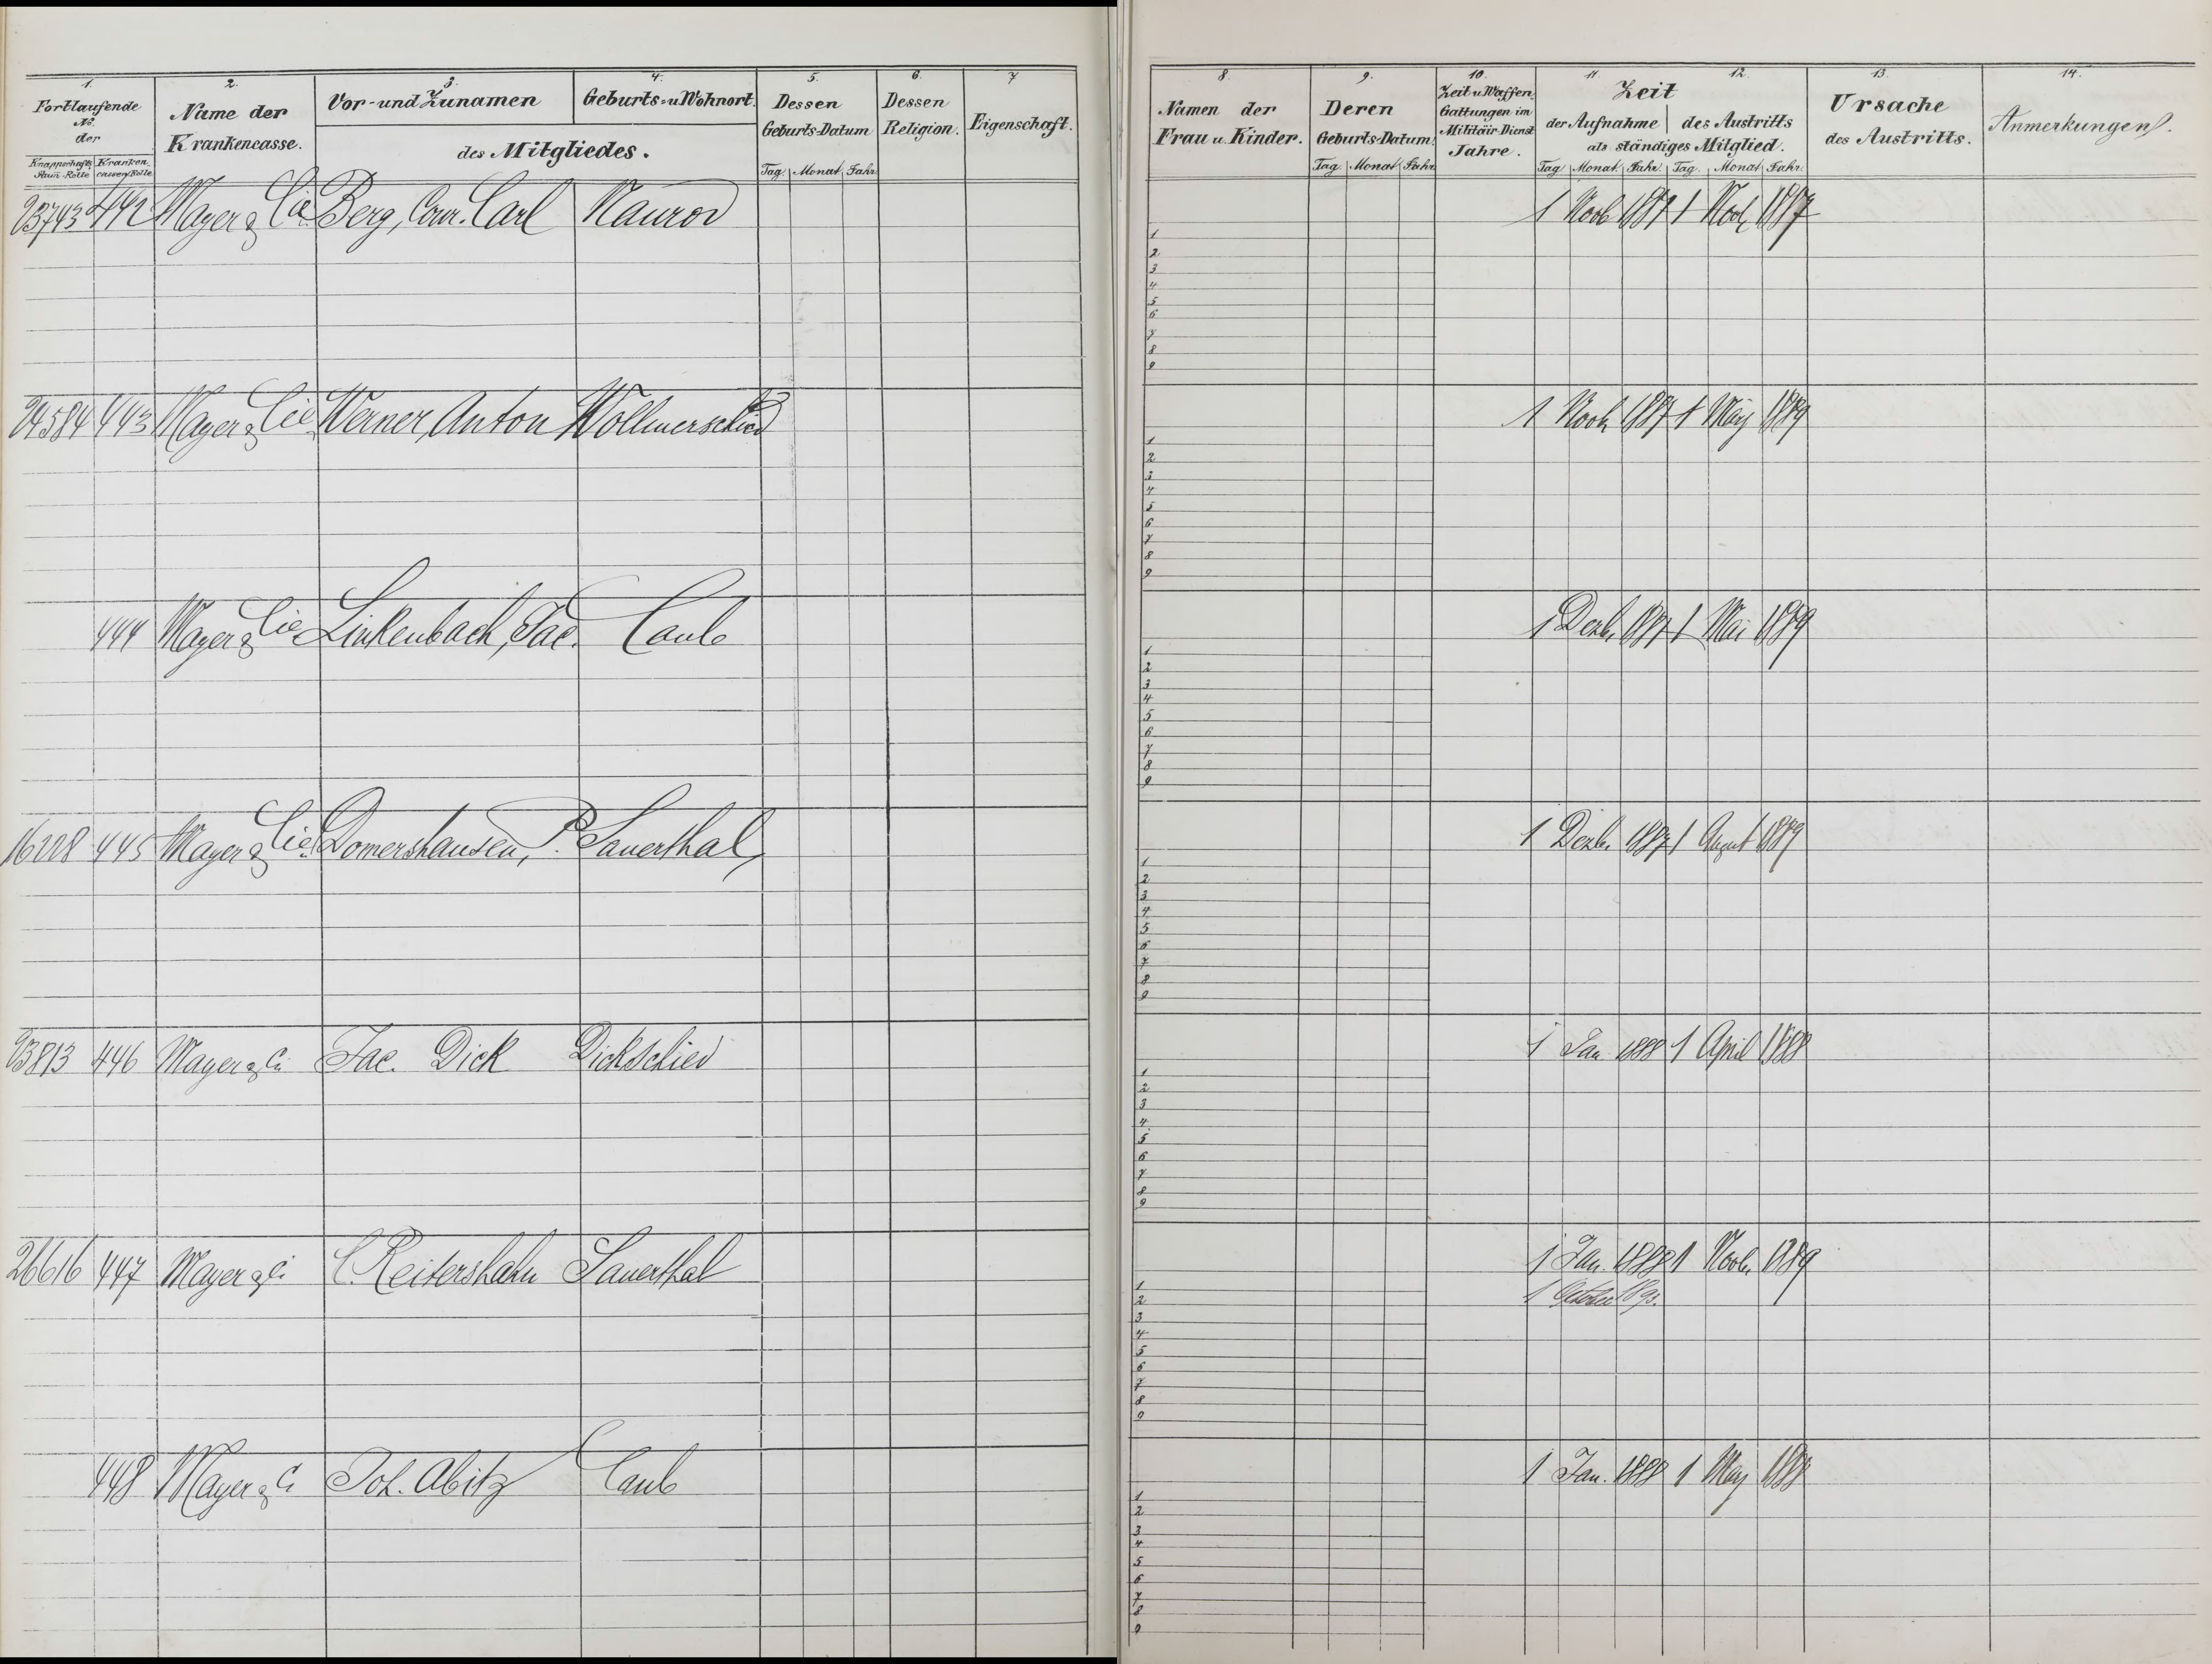 1. 2. 3. 4. 5. 6. 7
Fortlaufende No. der
Knappschafts Stam-Rolle Kranken cassen-Rolle
Name der Krankencasse.
Vor- und Zunamen Geburts- u. Wohnort.
des Mitgliedes.
Dessen Geburts-Datum
Tag. Monat. Jahr.
Dessen Religion.
Eigenschaft.
23743 442 Mayer & Cie Berg, Conr. Carl Naurod
24584 443 Mayer & Cie. Werner, Anton Wollmerschied
444 Mayer & Cie Linkenbach, Jac. Caub
16228 445 Mayer & Cie. Domershausen, P. Sauerthal,
23813 446 Mayer & Ci Jac. Dick Dickschied
26616 447 Mayer & Ci C. Reitershahn Sauerthal
448 Mayer & Ci Joh. Abitz Caub
8. 9. 10. 11. 12. 13. 14.
Namen der Frau u. Kinder.
Deren Geburts-Datum.
Tag. Monat. Jahr.
Zeit u. Waffen. Gattungen im Militär-Dienst Jahre.
Zeit
der Aufnahme des Austritts
als ständiges Mitglied.
Tag. Monat. Jahr. Tag. Monat. Jahr.
Ursache des Austritts.
Anmerkungen.
1 Novb 1887 1 Novb 1887
1
2
3
4
5
6
7
8
9
1 Novb 1887 1 May 1889
1
2
3
4
5
6
7
8
9
1 Dezb. 1887 1 Mai 1889
1
2
3
4
5
6
7
8
9
1 Dezb. 1887 1 August 1889
1
2
3
4
5
6
7
8
9
1 Jan. 1888 1 April 1888
1
2
3
4
5
6
7
8
9
1 Jan. 1888 1 Novb. 1889
1 October 1890.
1
2
3
4
5
6
7
8
9
1 Jan. 1888 1 May 1888
1
2
3
4
5
6
7
8
9